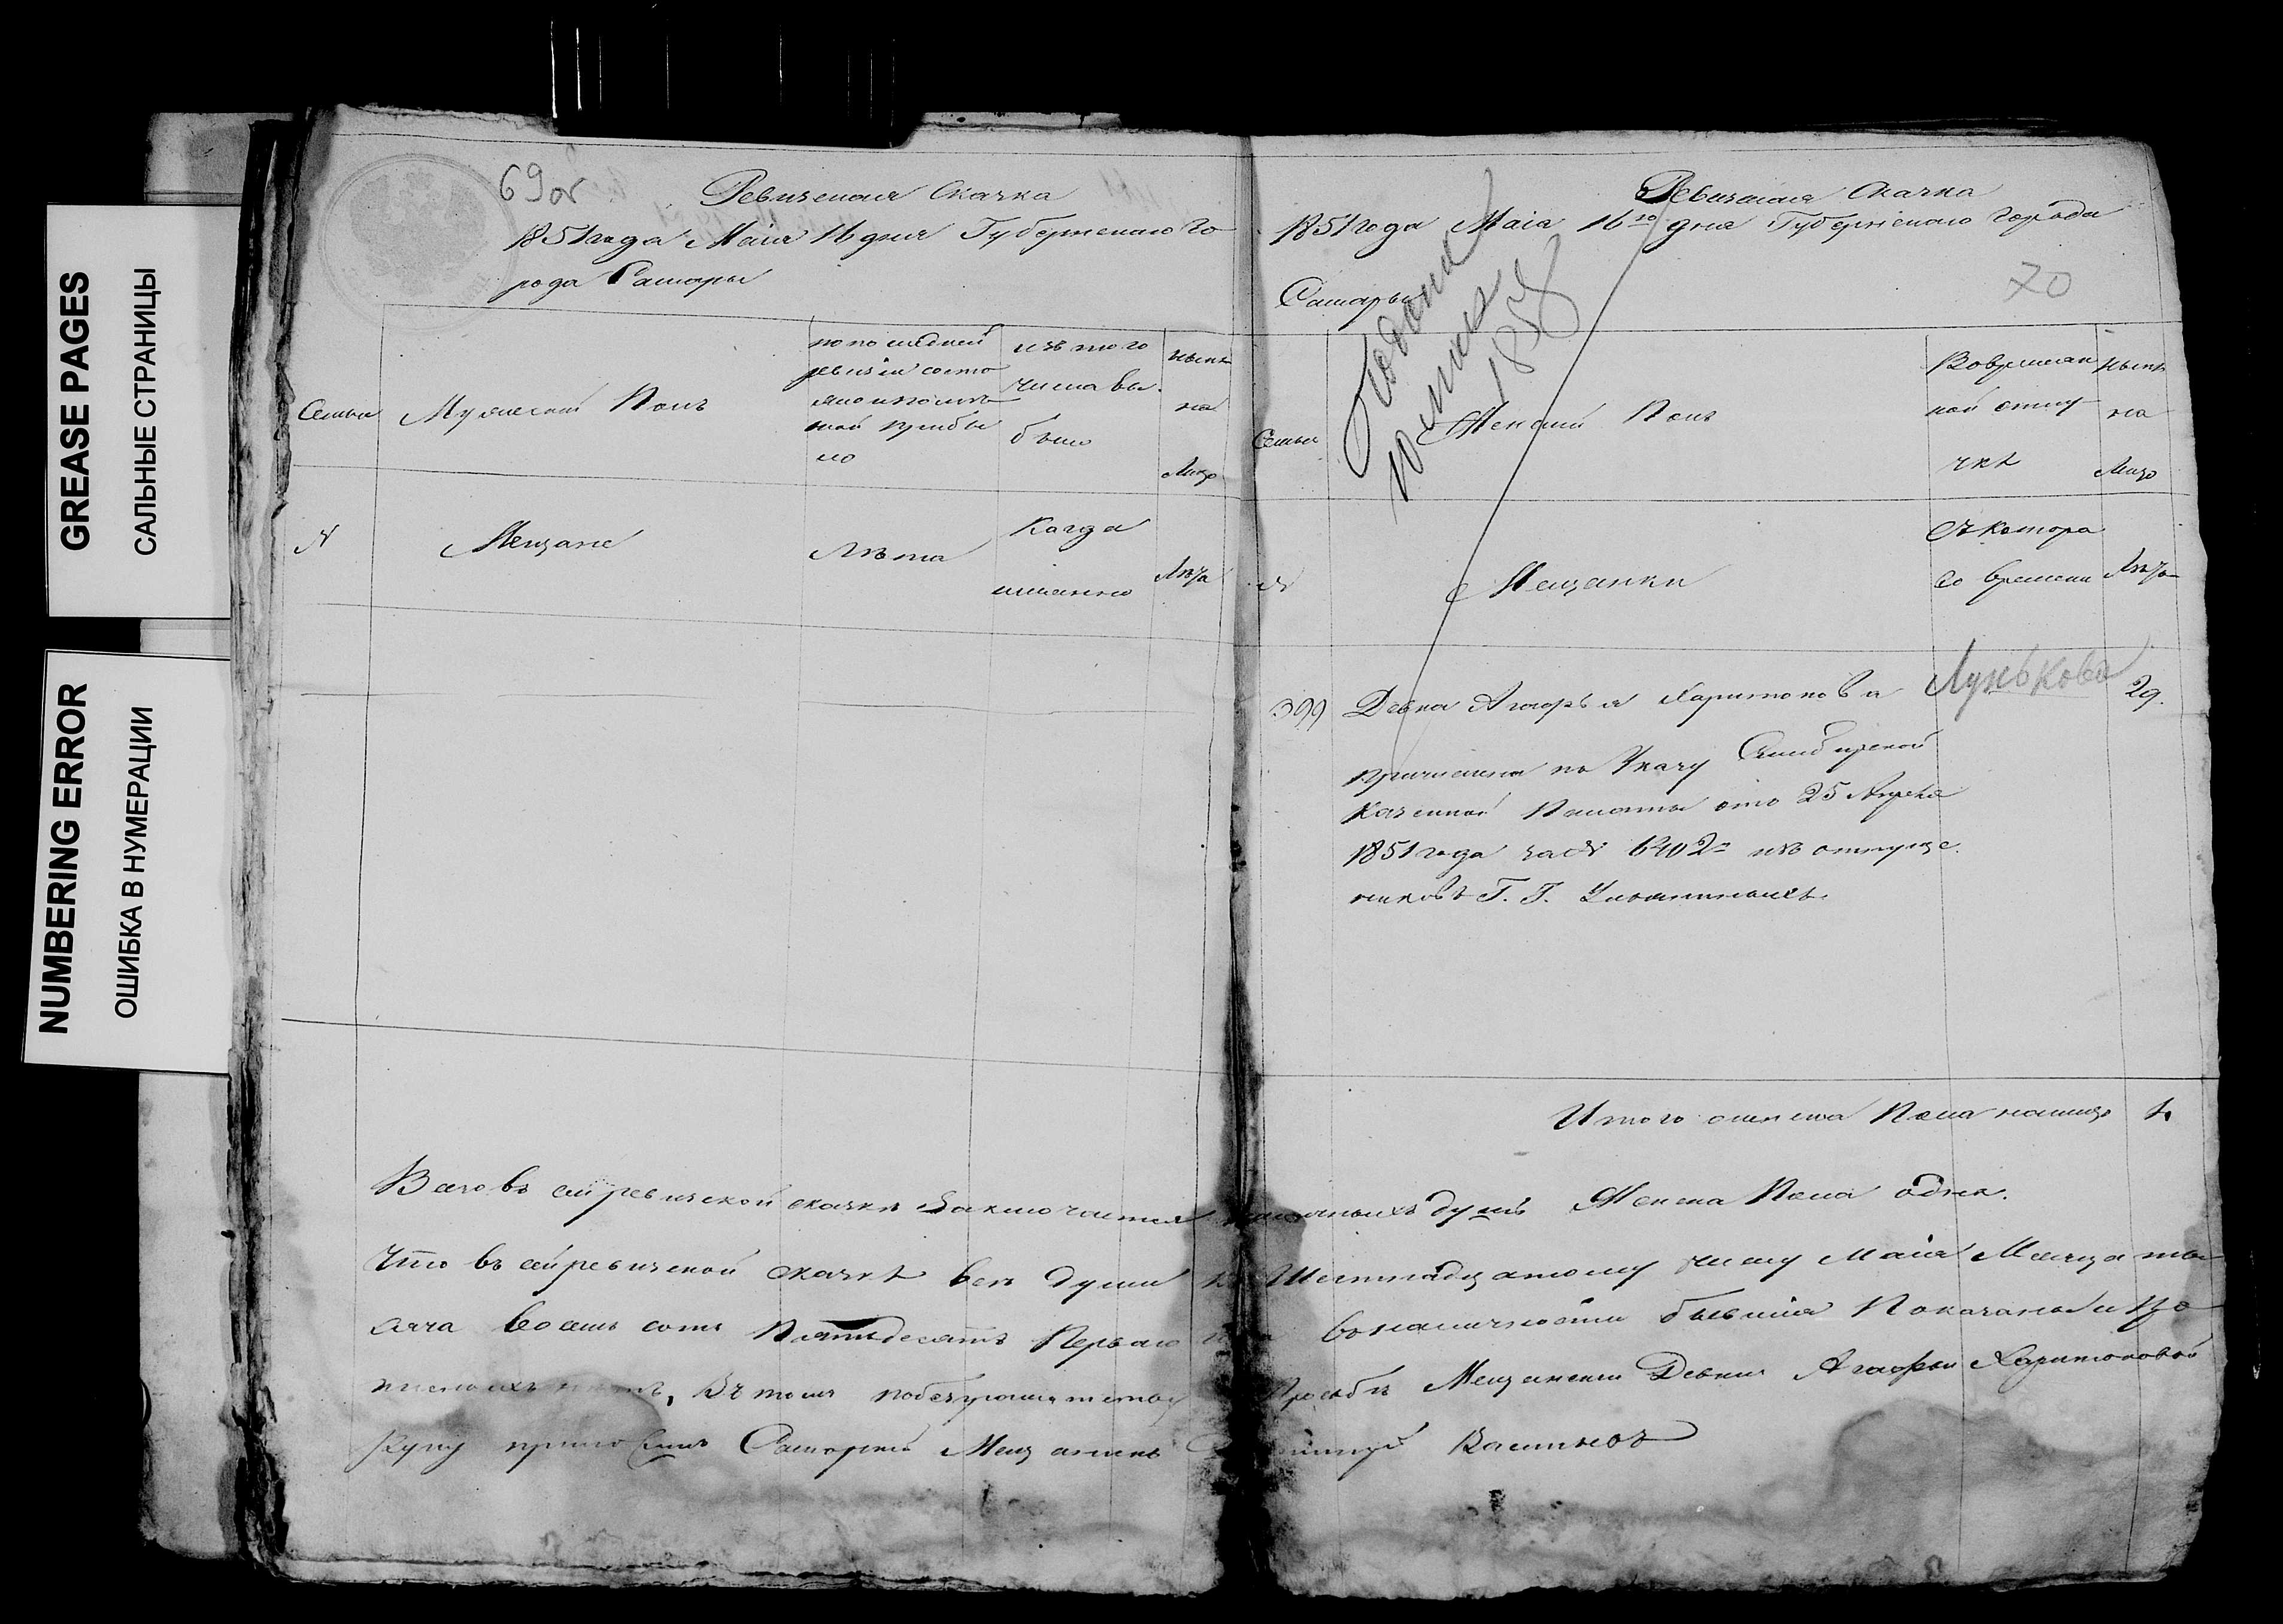 GREASE PAGES
САЛЬНЫЕ СТРАНИЦЫ
NUMBERING ERROR
ОШИБКА В НУМЕРАЦИИ
69об
Ревизская Сказка
1851 года Маия 16 дня Губернскаго Го
рода Самары
Семьи
Мужеской Полъ
по последней
ревизiи состо
яло и после
той прибы
ло
изъ того
числа вы
было
ныне
на
лицо
№
Мещане
Лѣта
Когда
именно
Лѣта
Ревизская Сказка
1851 года Маiя 16го дня Губернскаго города
Самары
70
Подана
1858
Семьи
Женскiй Полъ
Во времен
ной отлу
чкѣ
ныне
на
Лицо
№
Мещанки
Съ котора
го времени
Лѣта
399 Девка Агафья Харитонова Лунькова 29.
причислена по Указу Симбирской
Казенной Палаты отъ 25 Апреля
1851 года за № 6402м изъ отпуще
никовъ Г. Г.
Итого женска Пола налицо 1.
Всего въ сей ревизской сказкѣ Заключается наличныхъ душъ Женска Пола одна.
Что въ сей ревизской сказкѣ всѣ души къ Шестнадцатому числу Маiя Месяца ты
сяча восемь сотъ Пятидесятъ Перваго года въ наличности бывшiя Показаны и про
писныхъ нетъ, Въ томъ по безграмотству Просьбѣ Мещанской Девки Агафьи Харитоновой
Руку приложилъ Самарскiй Мещанинъ Васильевъ